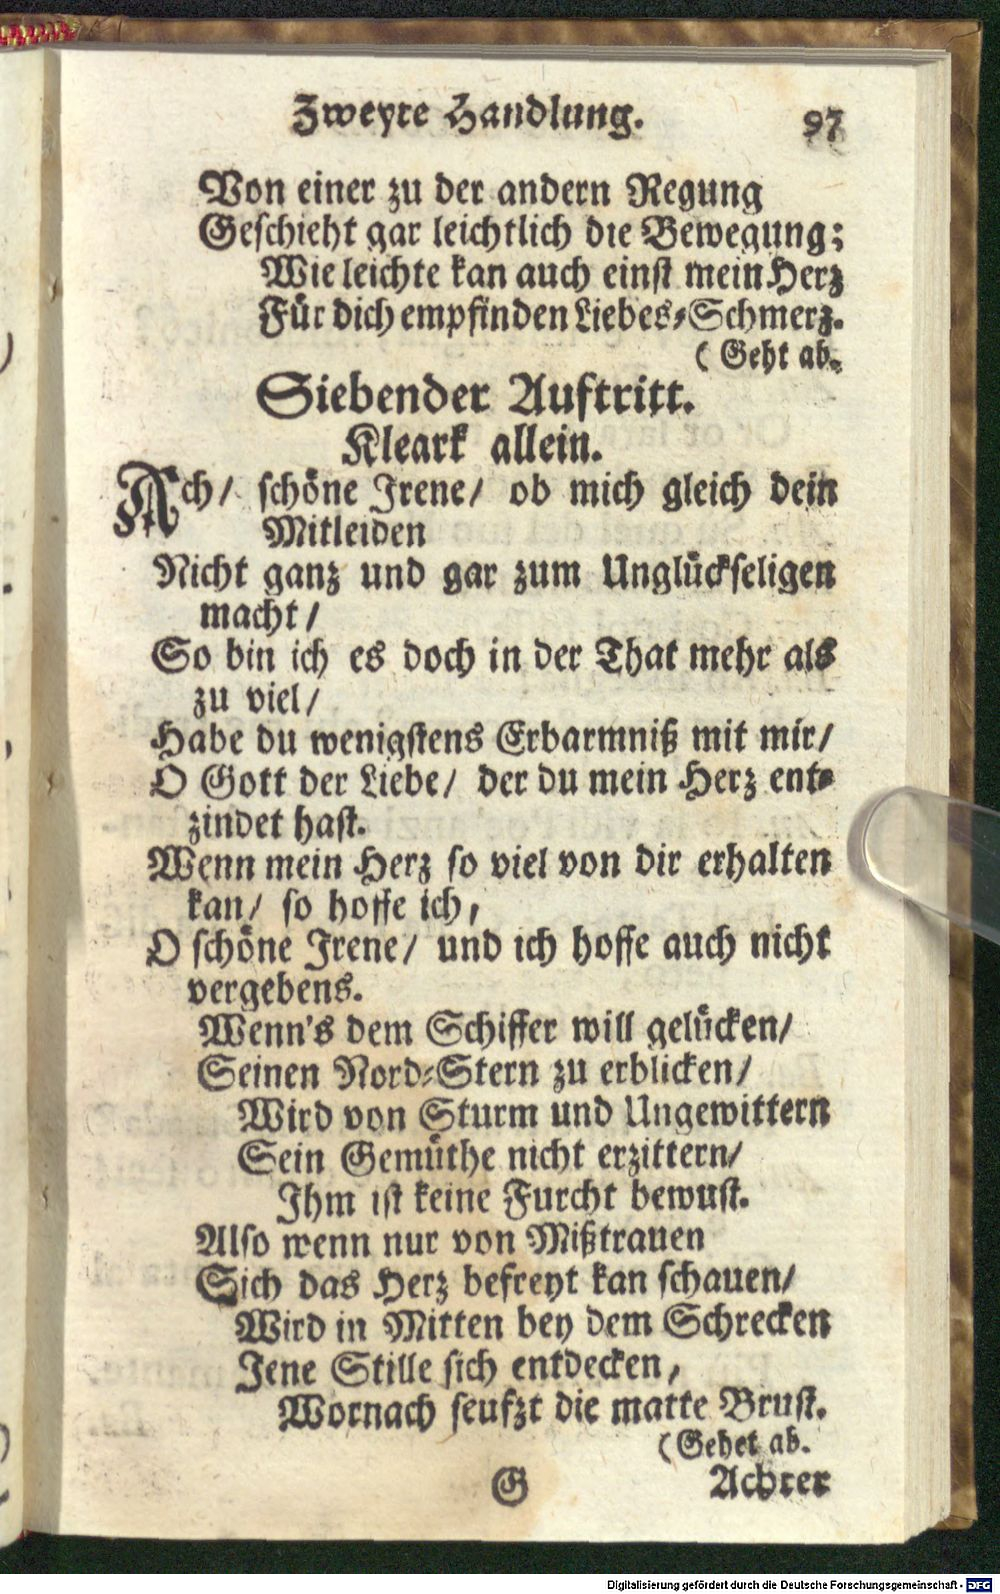 Zweyte Handlung. 97
Von einer zu der andern Regung
Geschieht gar leichtlich die Bewegung;
Wie leichte kan auch einst mein Herz
Für dich empfinden Liebes-Schmerz.
( Geht ab.
Siebender Auftritt.
Kleark allein.
Ach/ schöne Irene/ ob mich gleich dein
Mitleiden
Nicht ganz und gar zum Unglückseligen
macht/
So bin ich es doch in der That mehr als
zu viel/
Habe du wenigstens Erbarmniß mit mir/
O Gott der Liebe/ der du mein Herz ent-
zindet hast.
Wenn mein Herz so viel von dir erhalten
kan/ so hoffe ich,
O schöne Irene/ und ich hoffe auch nicht
vergebens.
Wenn's dem Schiffer will gelücken/
Seinen Nord-Stern zu erblicken/
Wird von Sturm und Ungewittern
Sein Gemüthe nicht erzittern/
Ihm ist keine Furcht bewust.
Also wenn nur von Mißtrauen
Sich das Herz befreyt kan schauen/
Wird in Mitten bey dem Schrecken
Jene Stille sich entdecken,
Wornach seufzt die matte Brust.
(Gehet ab.
G Achter
Digitalisierung gefördert durch die Deutsche Forschungsgemeinschaft - DFG